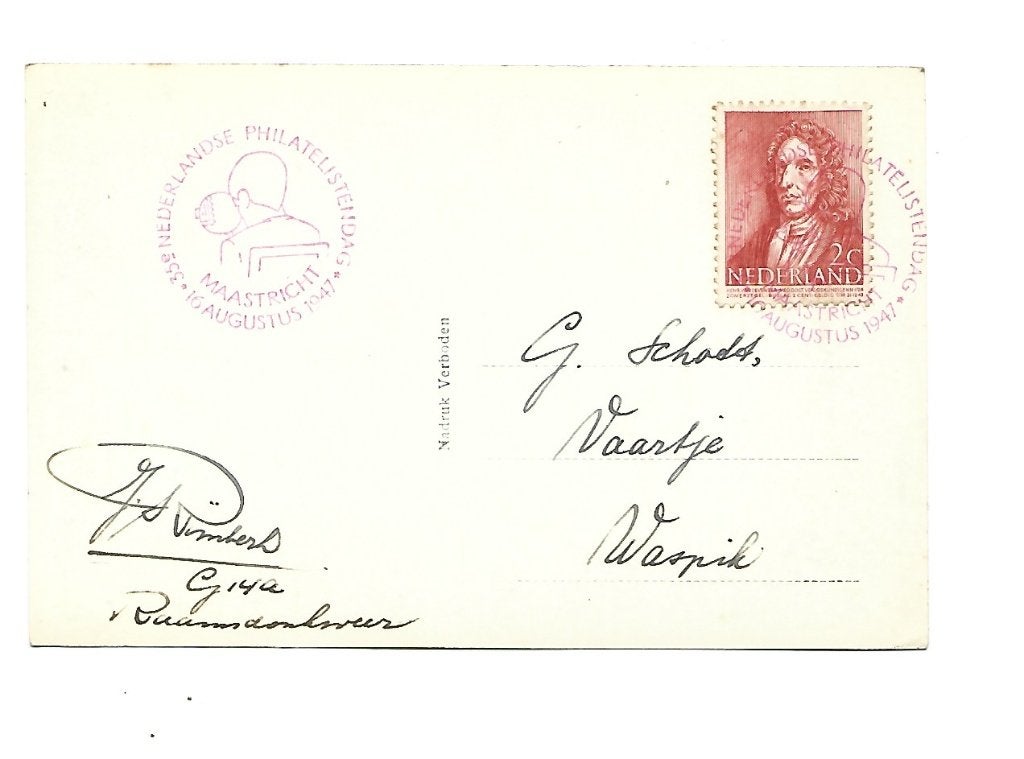 35e NEDERLANDSE PHILATELISTENDAG
MAASTRICHT
* 16 AUGUSTUS 1947 *
2 C
NEDERLAND
NEDERLANDSE PHILATELISTENDAG *
MAASTRICHT
AUGUSTUS 1947 *
Nadruk Verboden
G. Schodt,
Vaartje
Waspik
G 14a
Raamsdonkveer